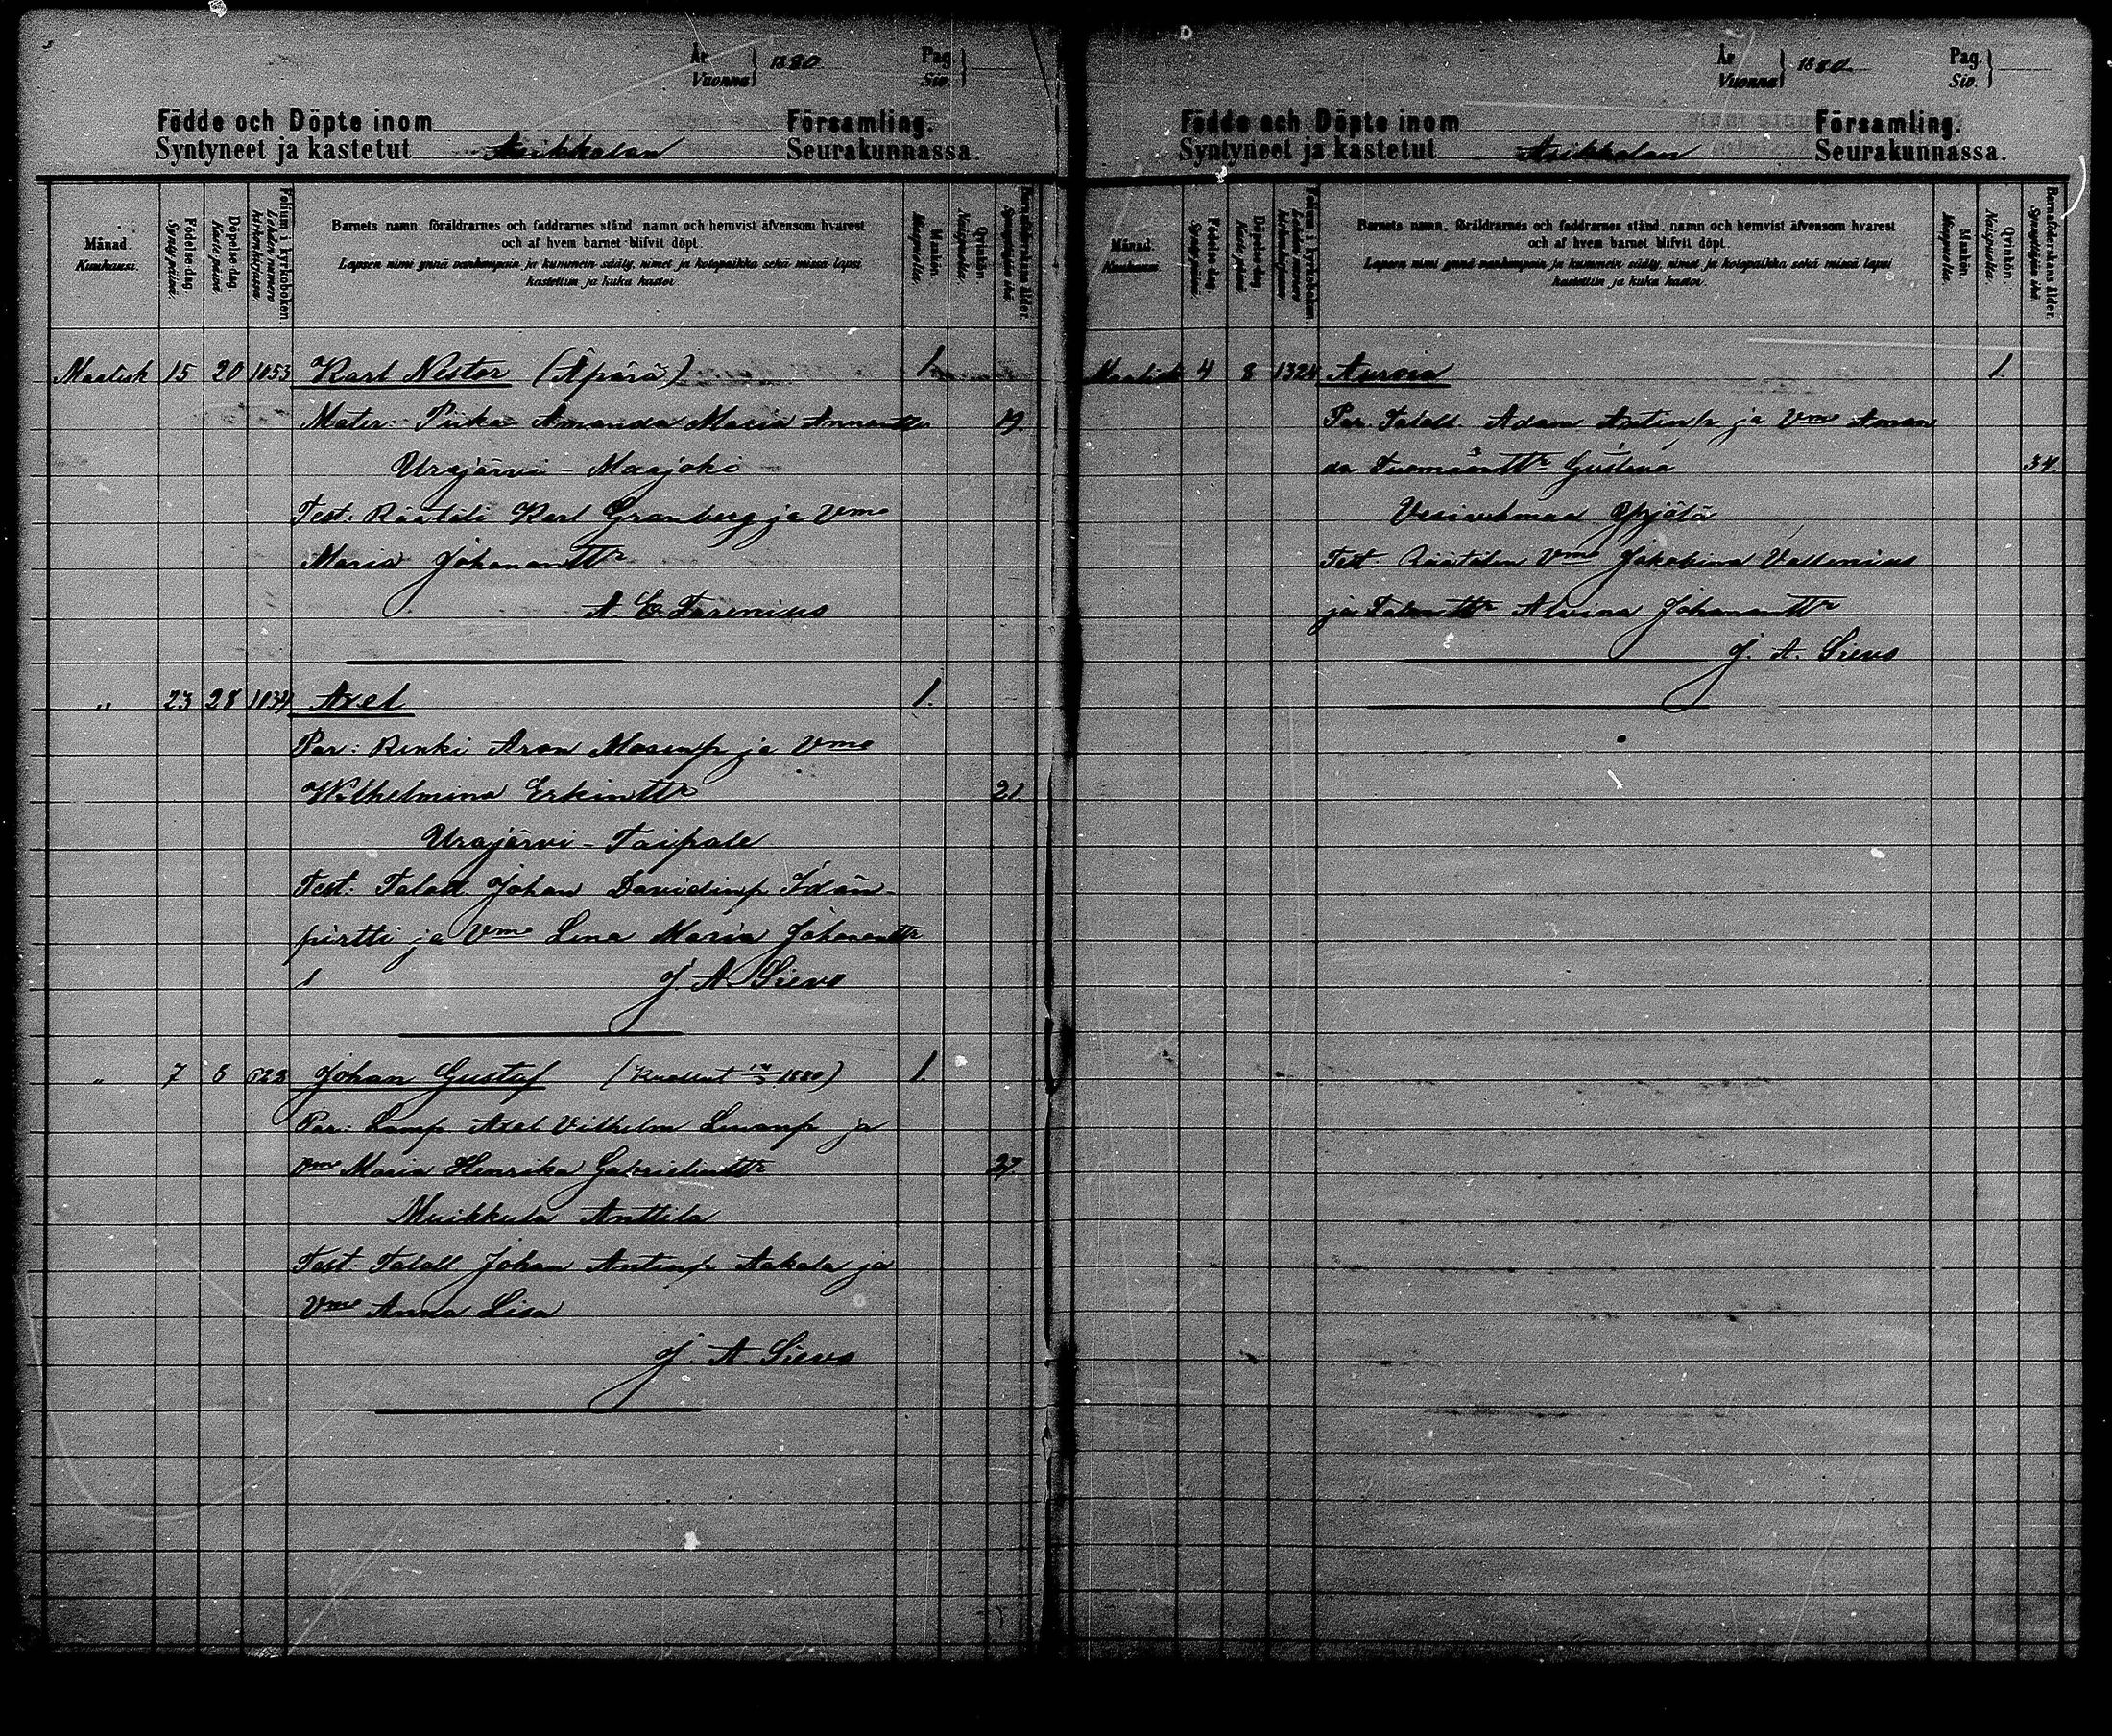 År
Vuonna } 1880
Pag.
Siv. }
Födde och Döpte inom Församling.
Syntyneet ja kastetut Asikkalan Seurakunnassa.
Månad.
Kuukausi.
Födelse-dag.
Syntypäivä.
Döpelse-dag.
Kastepäivä.
Folium i kyrkoboken.
Lehden numero kirkonkirjassa.
Barnets namn, föräldrarnes och faddrarnes stånd, namn och hemvist äfvensom hvarest
och af hvem barnet blifvit döpt.
Lapsen nimi ynnä vanhempain ja kummein sääty, nimet ja kotopaikka sekä missä lapsi
kastettiin ja kuka kastoi.
Mankön.
Miespuolia.
Qvinkön.
Naispuolia.
Barnaföderskans ålder.
Synnyttäjän ikä.
Maalisk 15 20 1053 Karl Nestor (Äpärä) 1.
Mater: Piika Amanda Maria Annantr 19.
Urajärvi - Maajoki
Test: Räätäli Karl Granberg ja Vmo
Maria Johanantr
A. E. Farenius
" 23 28 1034 Axel 1.
Par: Renki Aron Mosenp ja Vmo
Wilhelmina Erkintr 21.
Urajärvi - Taipale
Test: Talall Johan Davidinp Idän-
pirtti ja Vmo Lena Maria Johanantr
J. A. Sievo
" 7 8 623 Johan Gustaf (Kuollut 1880) 1.
Par: Lamp Axel Vilhelm ja
Vmo Maria Henrika Gabrielintr 27.
Muikkula Anttila
Test: Talall Johan Antinp Aakala ja
Vmo Anna Lisa
J. A. Sievo
År
Vuonna } 1880
Pag.
Siv. }
Födde och Döpte inom Församling.
Syntyneet ja kastetut Asikkalan Seurakunnassa.
Månad.
Kuukausi.
Födelse-dag.
Syntypäivä.
Döpelse-dag.
Kastepäivä.
Folium i kyrkoboken.
Lehden numero kirkonkirjassa.
Barnets namn, föräldrarnes och faddrarnes stånd, namn och hemvist äfvensom hvarest
och af hvem barnet blifvit döpt.
Lapsen nimi ynnä vanhempain ja kummein sääty, nimet ja kotopaikka sekä missä lapsi
kastettiin ja kuka kastoi.
Mankön.
Miespuolia.
Qvinkön.
Naispuolia.
Barnaföderskans ålder.
Synnyttäjän ikä.
Maalisk 4 8 1324 Aurora 1.
Par. Talall. Adam Antinp ja Vmo Aman
da Tuomaantr Gustava 34.
Vesivehmaa Yrjölä
Test: Räätälin Vmo Jakobina Vallenius
ja Talontr Alvina Johanantr
J. A. Sievo